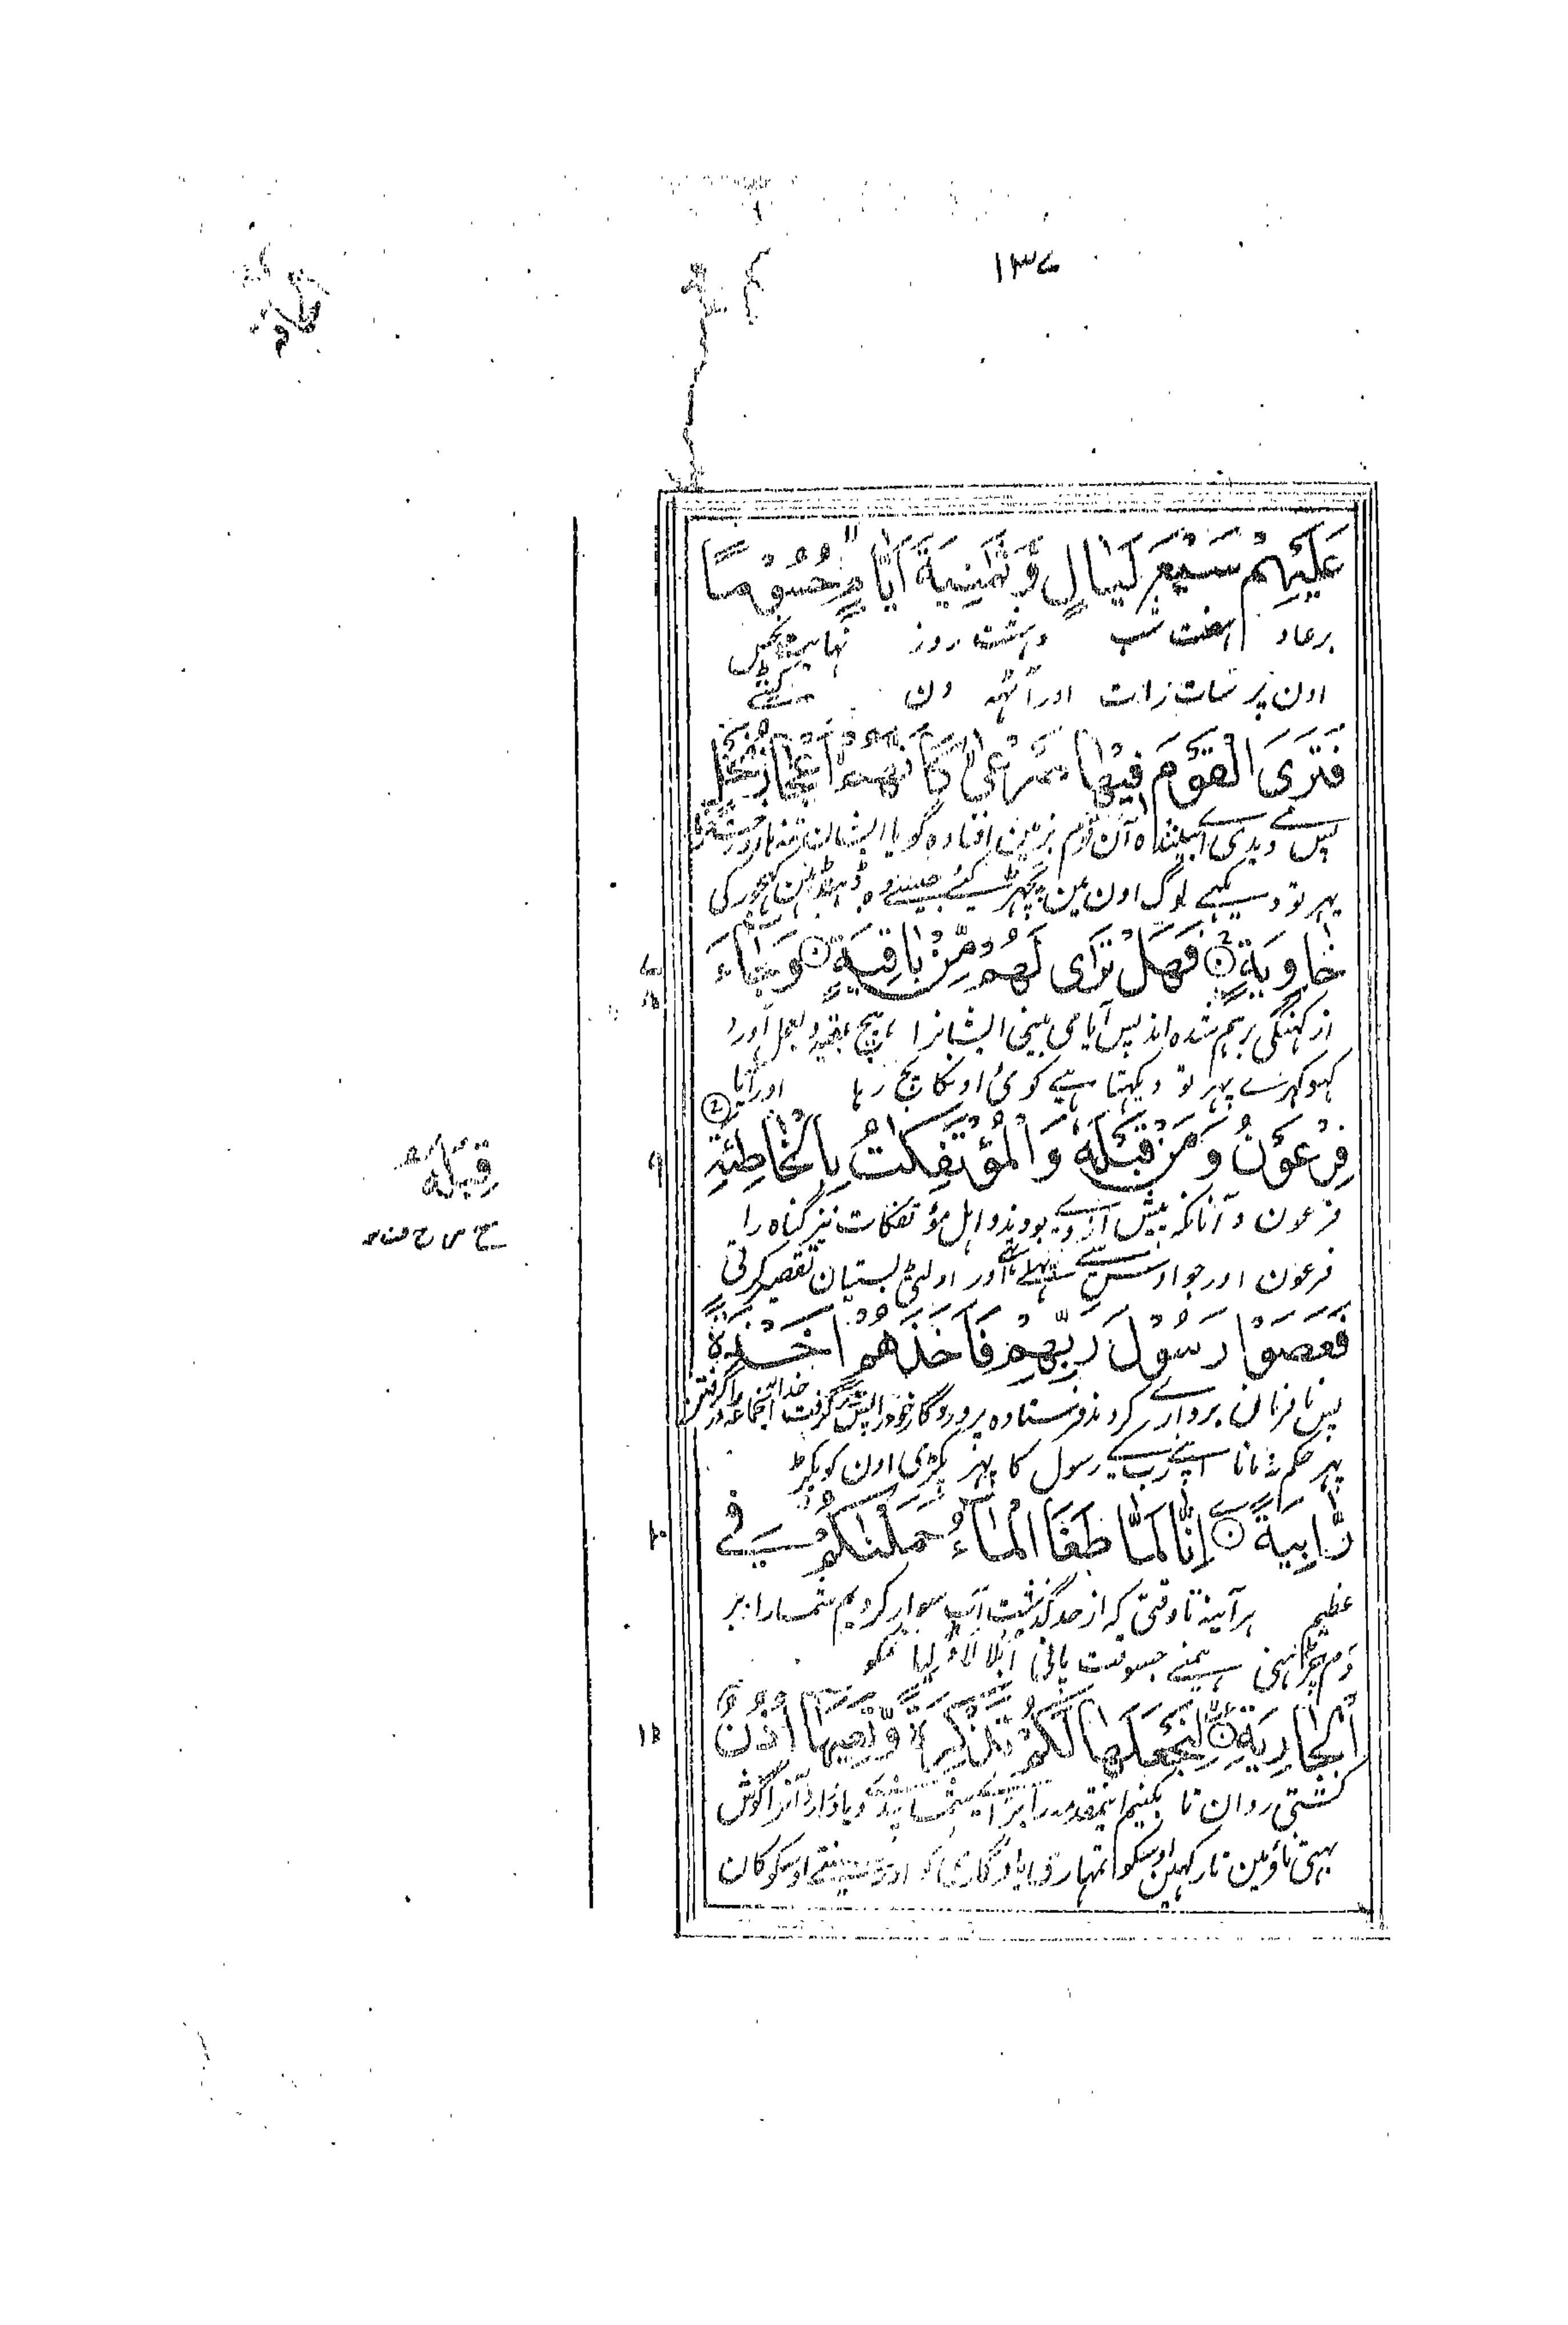 ١٣٧
عَلَيْهِمْ سَبْعَ لَيَالٍ وَّثَمٰنِيَةَ اَيَّامٍ حُسُوْمًا
بر عاد هفت شب و هشت روز
اون پر سات رات اور آٹهہ دن
فَتَرَى الْقَوْمَ فِيْهَا صَرْعٰى كَاَنَّهُمْ اَعْجَازُ نَخْلٍ
پس می دیدی اے بیننده آن قوم بر زمین افتاده گویا ایشان
پهر تو دیکہے لوگ اون مین پچهڑ گئے جیسے وہ ڈهنڈ ہین کہجور کی
خَاوِيَةٍ ۞ فَهَلْ تَرٰى لَهُمْ مِّنْۢ بَاقِيَةٍ ۞ وَجَآءَ
از کهنگی برہم شده اند پس آیا می بینی ایشانرا ہیچ بقیه و بعمل آورد
کہوکہرے پهر تو دیکہتا ہے کوئ اونکا بچ رہا اور آیا
فِرْعَوْنُ وَمَنْ قَبْلَهٗ وَالْمُؤْتَفِكٰتُ بِالْخَاطِئَةِ
٩
قِبَلَهٗ
فرعون و آنانکہ پیش از وے بودند و اہل مؤتفکات نیز گناه را
فرعون اور جو اوس سے پہلے تہے اور اولٹی بستیان تقصیر کرتی
فَعَصَوْا رَسُوْلَ رَبِّهِمْ فَاَخَذَهُمْ اَخْذَةً
پس نافرمان برداری کردند فرستاده پروردگار خود را پس گرفت خدا
پهر حکم نہ مانا اپنے رب کے رسول کا پهر پکڑی اون کو پکڑ
رَّابِيَةً ۞ اِنَّا لَمَّا طَغَا الْمَآءُ حَمَلْنٰكُمْ فِى
١٠
عظیم ہر آینہ تا وقتی کہ از حد گذشت آب سوار کردیم شما را بر
ہمنے جسوقت پانی ابلا لاد لیا تمکو
الْجَارِيَةِ ۞ لِنَجْعَلَهَا لَكُمْ تَذْكِرَةً وَّتَعِيَهَآ اُذُنٌ
١١
کشتی روان تا بکنیم اینمقدمہ را برائے شما پند و یاد دارد آنرا گوش
بہتی ناؤ مین تا رکہین اوسکو تمہاری یادگاری کو اور سینتے اوسکو کان